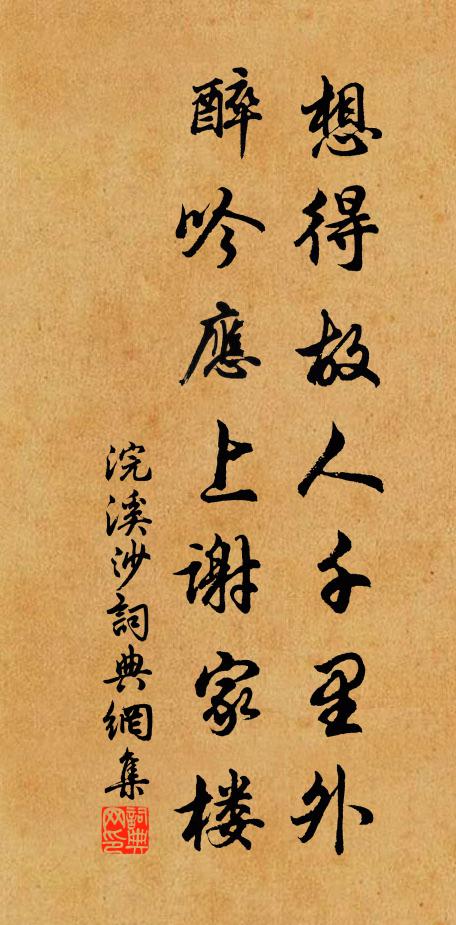 想得故人千里外
醉吟應上謝家楼
浣溪沙詞典網集
詞典网印